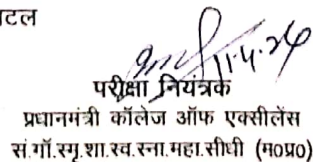 टल
11.4.24
परीक्षा नियंत्रक
प्रधानमंत्री कॉलेज ऑफ एक्सीलेंस
सं.गॉ.स्मृ.शा.स्व.स्ना.महा.सीधी (म0प्र0)